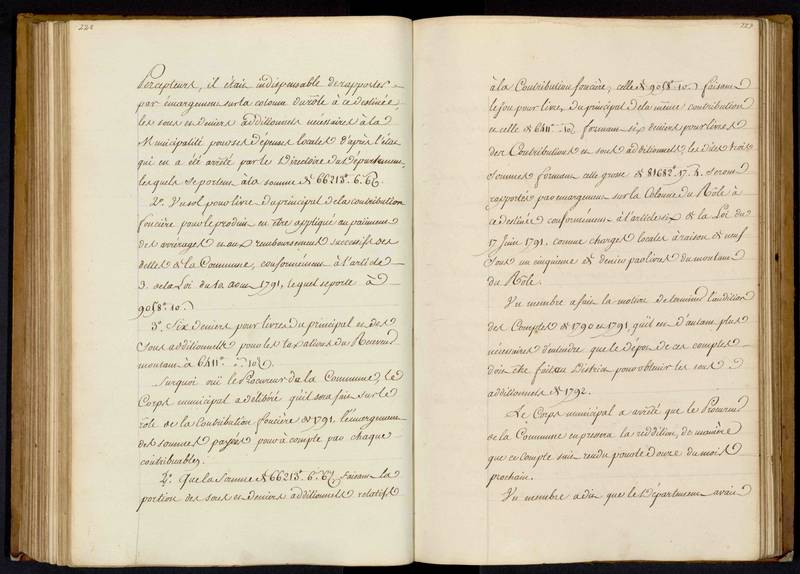 228
Percepteurs, il était indispensable de rapporter
par émargement sur la colonne du rôle à ce destinée,
les sous en deniers additionnels nécessaires à la
Municipalité pour ses dépenses locales d'après l'état
qui en a été arrêté par le Directoire du Département
lesquels se portent à la somme de 66213.# 6.s
2.° Un sol pour livre du principal de la contribution
foncière pour le produit en être appliqué au paiement
des arrérages en aux remboursemens successifs des
dettes de la Commune, conformément à l'article
3. de la Loi du 10 aout 1791, lequel se porte à
9058.# 10.s
3.° Six deniers pour livres du principal en des
sous additionnels pour les taxations du Receveur
montant à 6411.#
Surquoi ouï le Procureur de la Commune, le
Corps municipal a délibéré qu'il sera fait sur le
rôle de la Contribution foncière de 1791, l'émargement
des sommes payées pour à compte par chaque
contribuables.
2.° Que la Somme de 66213.# 6.s faisant la
portion des sous en deniers additionnels relatifs
229
à la Contribution foncière, celle de 9058.# 10.s faisant
le sou pour livre, du principal de la même contribution
en celle de 6411.# formant six deniers pour livres
des Contributions en sous additionnels, les dites trois
sommes formant celle grosse de 81682.# 17.s 4. seront
rapportés par émargement sur la Colonne du Rôle à
ce destinée conformément à l'article six de la Loi du
17 Juin 1791, comme charges locales à raison de neuf
sous un cinquieme de deniers par livres du montant
du Rôle.
Un membre a fait la motion de l'audition
des Comptes de 1790 en 1791, qu'il en d'autant plus
nécessaires d'entendre que le dépôt de ces comptes
doit être fait au District pour obtenir les sous
additionnels de 1792.
Le Corps municipal a arrêté que le Procureur
de la Commune en pressera la reddition, de manière
que ce compte soit rendu pour le douze du mois
prochain.
Un membre a dit que le Département avait